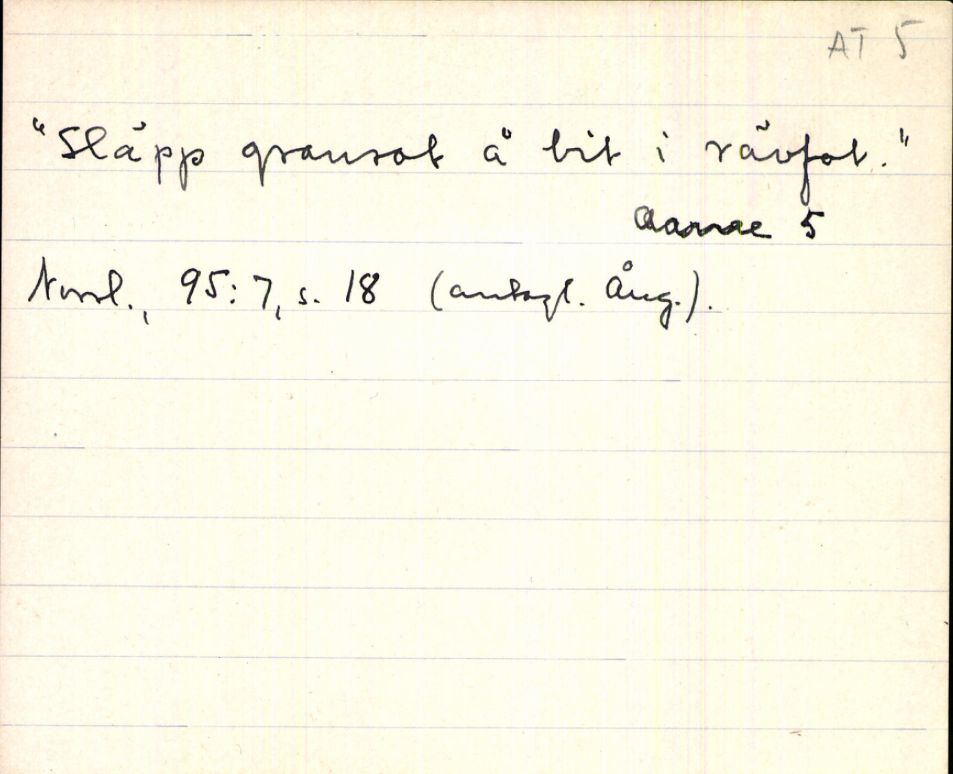 AT 5
"Släpp granrot å bit i rävfot."
Aarne 5
Norrl., 95:7, s. 18 (antagl. Ång.).